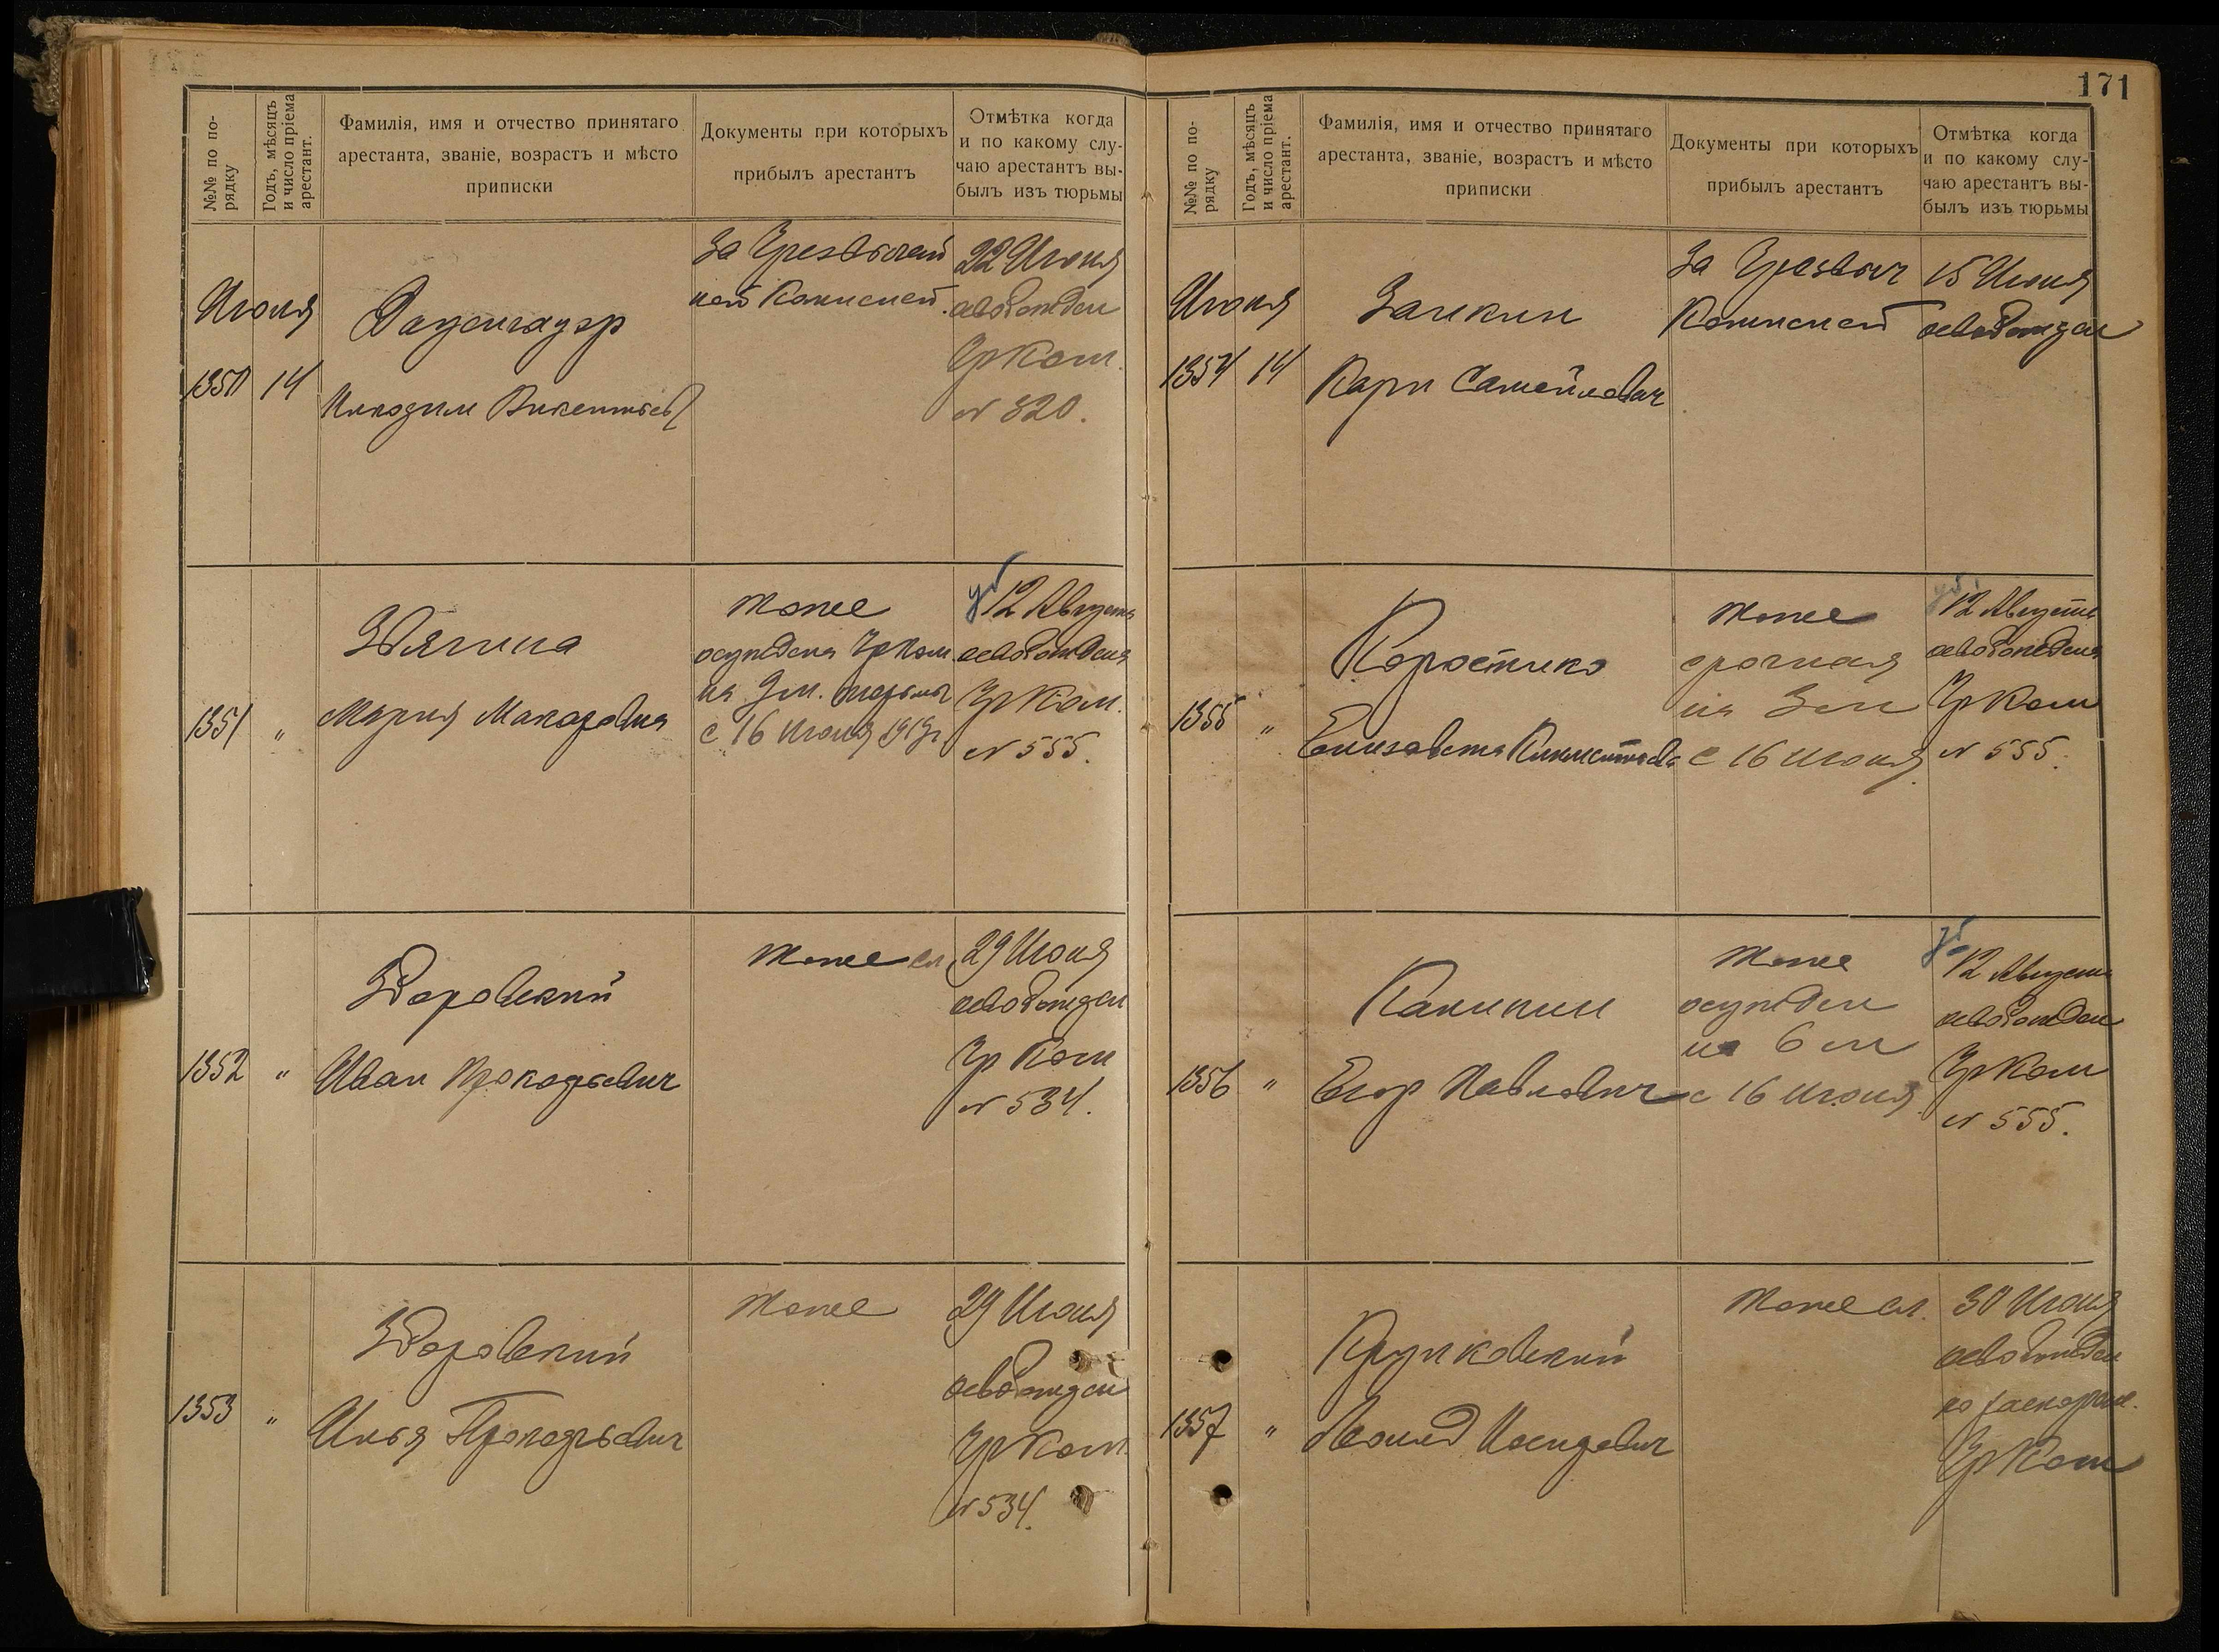 171
№№ по по-
рядку
Годъ, мѣсяцъ
и число пріема
арестант.
Фамилія, имя и отчество принятаго
арестанта, званіе, возрастъ и мѣсто
приписки
Документы при которыхъ
прибылъ арестантъ
Отмѣтка когда
и по какому слу-
чаю арестантъ вы-
былъ изъ тюрьмы
Июня
1350 14
Никодим Викентьев
За Чрезвычай
ной Комиссией
22 Июня
освобожден
ЧрКом.
N 320.
1351 "
Звягина
Мария Макаровна
тоже
осуждена ЧрКом
на 9 м. тюрьмы
с 16 Июня 1919г
12 Августа
освобождена
ЧрКом.
N 555.
1352 "
Здаровский
Иван Прокофьевич
тоже сл
29 Июня
освобожден
Чр Ком
N 534.
1353 "
Здаровский
Илья Прокофьевич
тоже
29 Июня
освобожден
ЧрКом
N 534.
№№ по по-
рядку
Годъ, мѣсяцъ
и число пріема
арестант.
Фамилія, имя и отчество принятаго
арестанта, званіе, возрастъ и мѣсто
приписки
Документы при которыхъ
прибылъ арестантъ
Отмѣтка когда
и по какому слу-
чаю арестантъ вы-
былъ изъ тюрьмы
Июня
1354 14
Заикин
Карп Самойлович
За Чрезвыч
Комиссией
15 Июня
освобожден
1355 "
Коростико
Елизавета Климентьев
тоже
срочная
на 3 м
с 16 Июня
12 Августа
освобождена
ЧрКом
N 555.
1356 "
Канипин
Егор Павлович
тоже
осужден
на 6 м
с 16 Июня
12 Августа
освобожден
ЧрКом
N 555.
1357 "
Крупковский
Леонид Иосифович
тоже сл.
30 Июня
освобожден
по распоряж.
ЧрКом